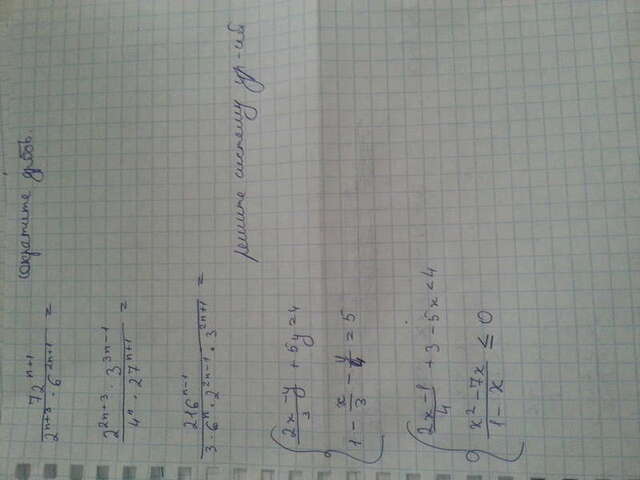 сократите дробь
72^{n+1} / (2^{n+3} · 6^{2n+1}) =
(2^{2n+3} · 3^{3n-1}) / (4^n · 27^{n+1}) =
216^{n-1} / (3 · 6^n · 2^{2n-1} · 3^{2n+1}) =
решите систему ур-ий
{ (2x-y)/3 + 5y = 4
1 - x/3 - y/4 = 5
{ (2x-1)/4 + 3 - 5x < 4
(x² - 7x)/(1 - x) ≤ 0